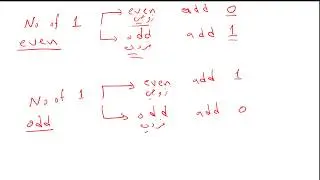 No of 1 even add 0
زوجي
even odd add 1
فردي
No of 1 even add 1
زوجي
odd odd add 0
فردي